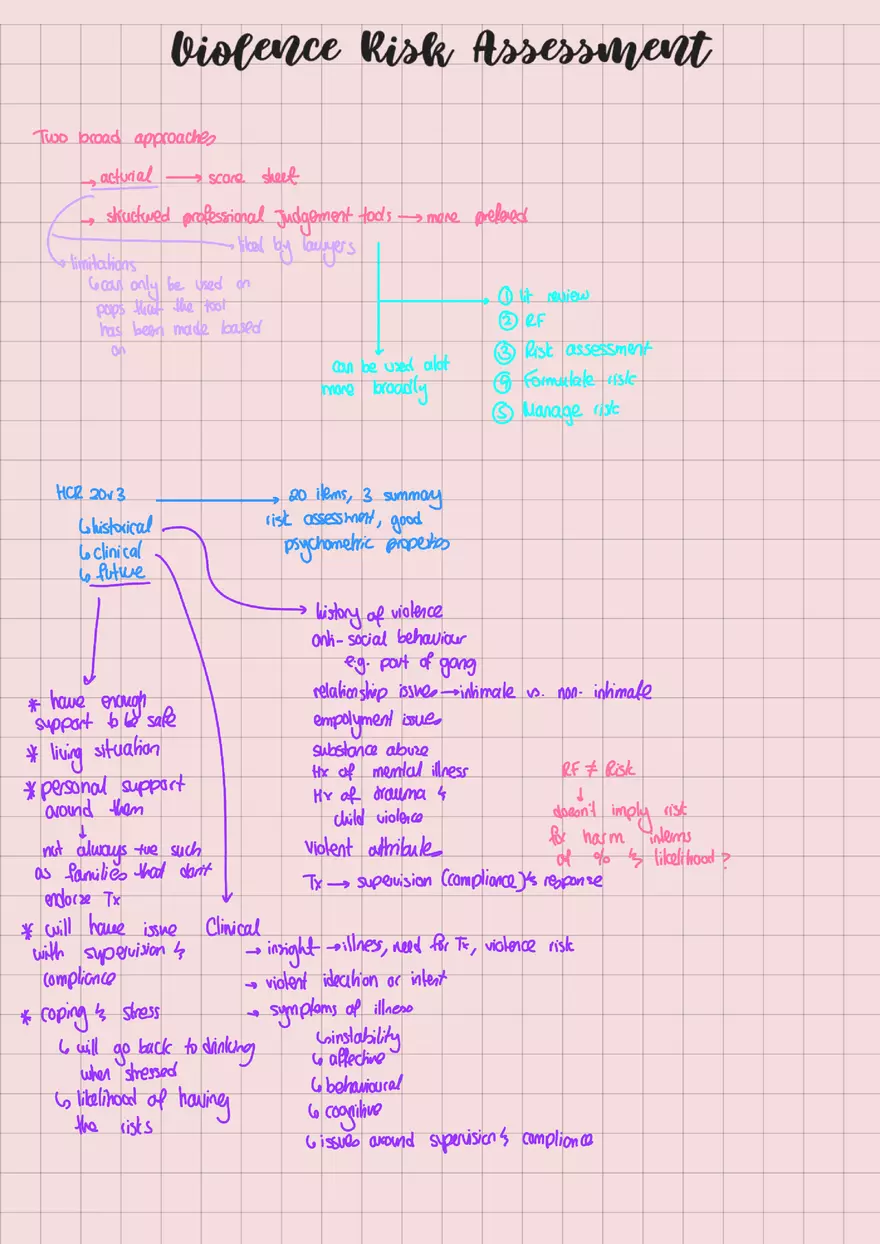 Violence Risk Assessment
Two broad approaches
→ acturial → score sheet
→ structured professional judgement tools → more prefered
→ liked by lawyers
→ limitations
↳ can only be used on
pops that the tool
has been made based
on
① lit review
② RF
③ Risk assessment
④ Formulate risk
⑤ Manage risk
can be used alot
more broadly
HCR 20v3 → 20 items, 3 summary
risk assessment, good
psychometric properties
↳ historical
↳ clinical
↳ future
history of violence
anti-social behaviour
e.g. part of gang
relationship issues → intimate vs. non-intimate
empolyment issues
substance abuse
Hx of mental illness
Hx of trauma &
child violence
Violent attributes
Tx → supervision (compliance) & response
RF ≠ Risk
↓
doesn't imply risk
for harm interms
of % & likelihood?
* have enough
support to be safe
* living situation
* personal support
around them
↓
not always +ve such
as families that don't
endorse Tx
* will have issue
with supervision &
compliance
* coping & stress
↳ will go back to drinking
when stressed
↳ likelihood of having
the risks
Clinical
→ insight → illness, need for Tx, violence risk
→ violent ideation or intent
→ symptoms of illness
↳ instability
↳ affective
↳ behavioural
↳ cognitive
↳ issues around supervision & compliance